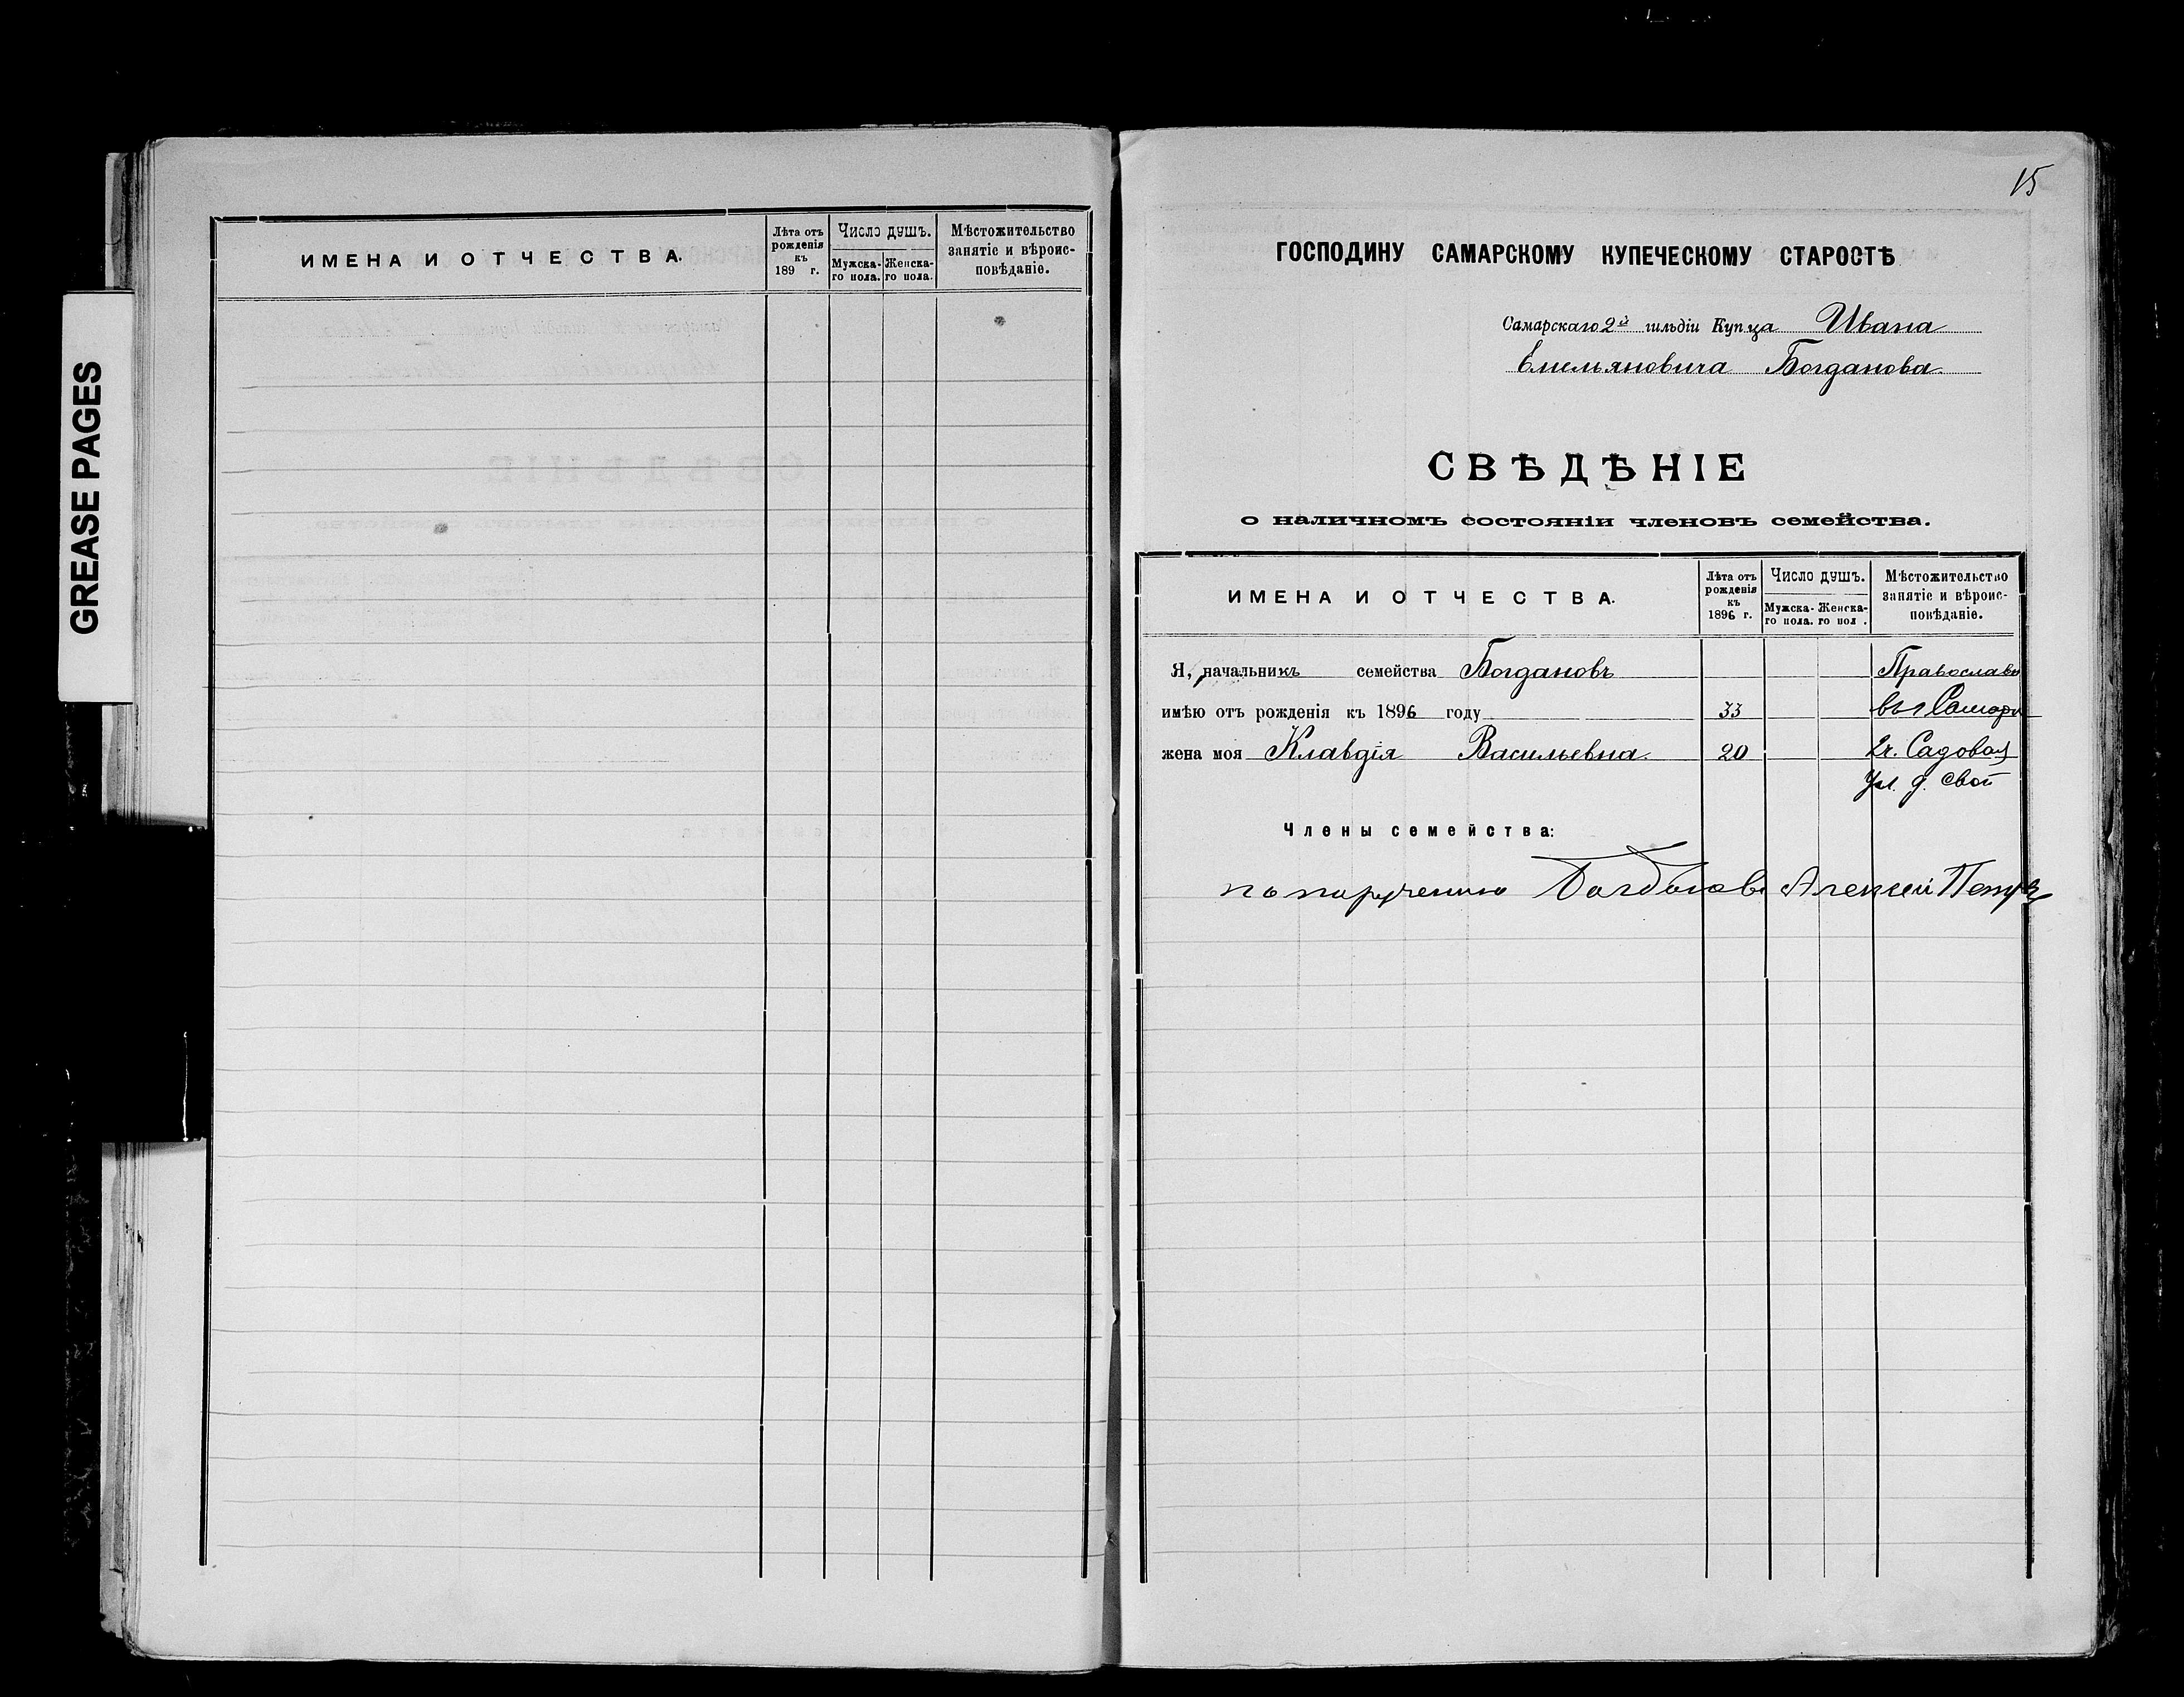 GREASE PAGES
ИМЕНА И ОТЧЕСТВА.
Лѣта отъ рожденія къ 189 г.
Число душъ.
Мужска-го пола.
Женска-го пола.
Мѣстожительство занятіе и вѣроис-повѣданіе.
15
ГОСПОДИНУ САМАРСКОМУ КУПЕЧЕСКОМУ СТАРОСТѢ
Самарскаго 2й гильдіи Купца Ивана
Емельяновича Богданова.
СВѢДѢНІЕ
о наличномъ состояніи членовъ семейства.
ИМЕНА И ОТЧЕСТВА.
Лѣта отъ рожденія къ 1896 г.
Число душъ.
Мужска-го пола.
Женска-го пол .
Мѣстожительство занятіе и вѣроис-повѣданіе.
Я, начальникъ семейства Богдановъ Православн
имѣю отъ рожденія къ 1896 году 33 въ г Самарѣ
жена моя Клавдія Васильевна. 20 2ч. Садовая
ул. д. свой
Члены семейства:
по порученію Алексей